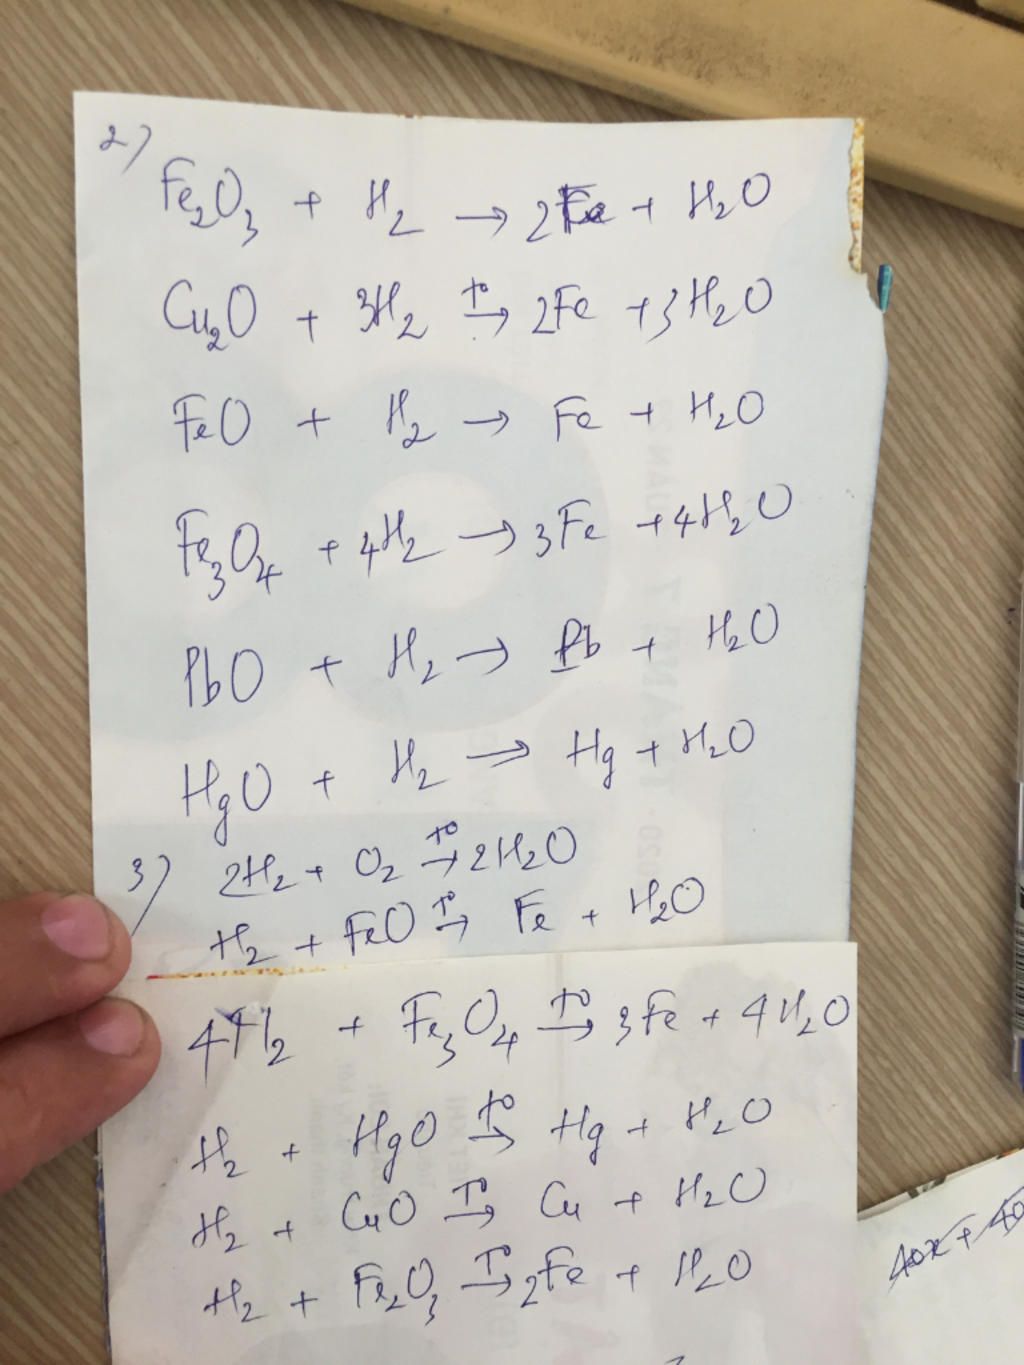 2)
Fe₂O₃ + H₂ → 2Fe + H₂O
Cu₂O + 3H₂ t°→ 2Fe + 3H₂O
FeO + H₂ → Fe + H₂O
Fe₃O₄ + 4H₂ → 3Fe + 4H₂O
PbO + H₂ → Pb + H₂O
HgO + H₂ → Hg + H₂O
3) 2H₂ + O₂ t°→ 2H₂O
H₂ + FeO t°→ Fe + H₂O
4H₂ + Fe₃O₄ t°→ 3Fe + 4H₂O
H₂ + HgO t°→ Hg + H₂O
H₂ + CuO t°→ Cu + H₂O
H₂ + Fe₂O₃ t°→ 2Fe + H₂O